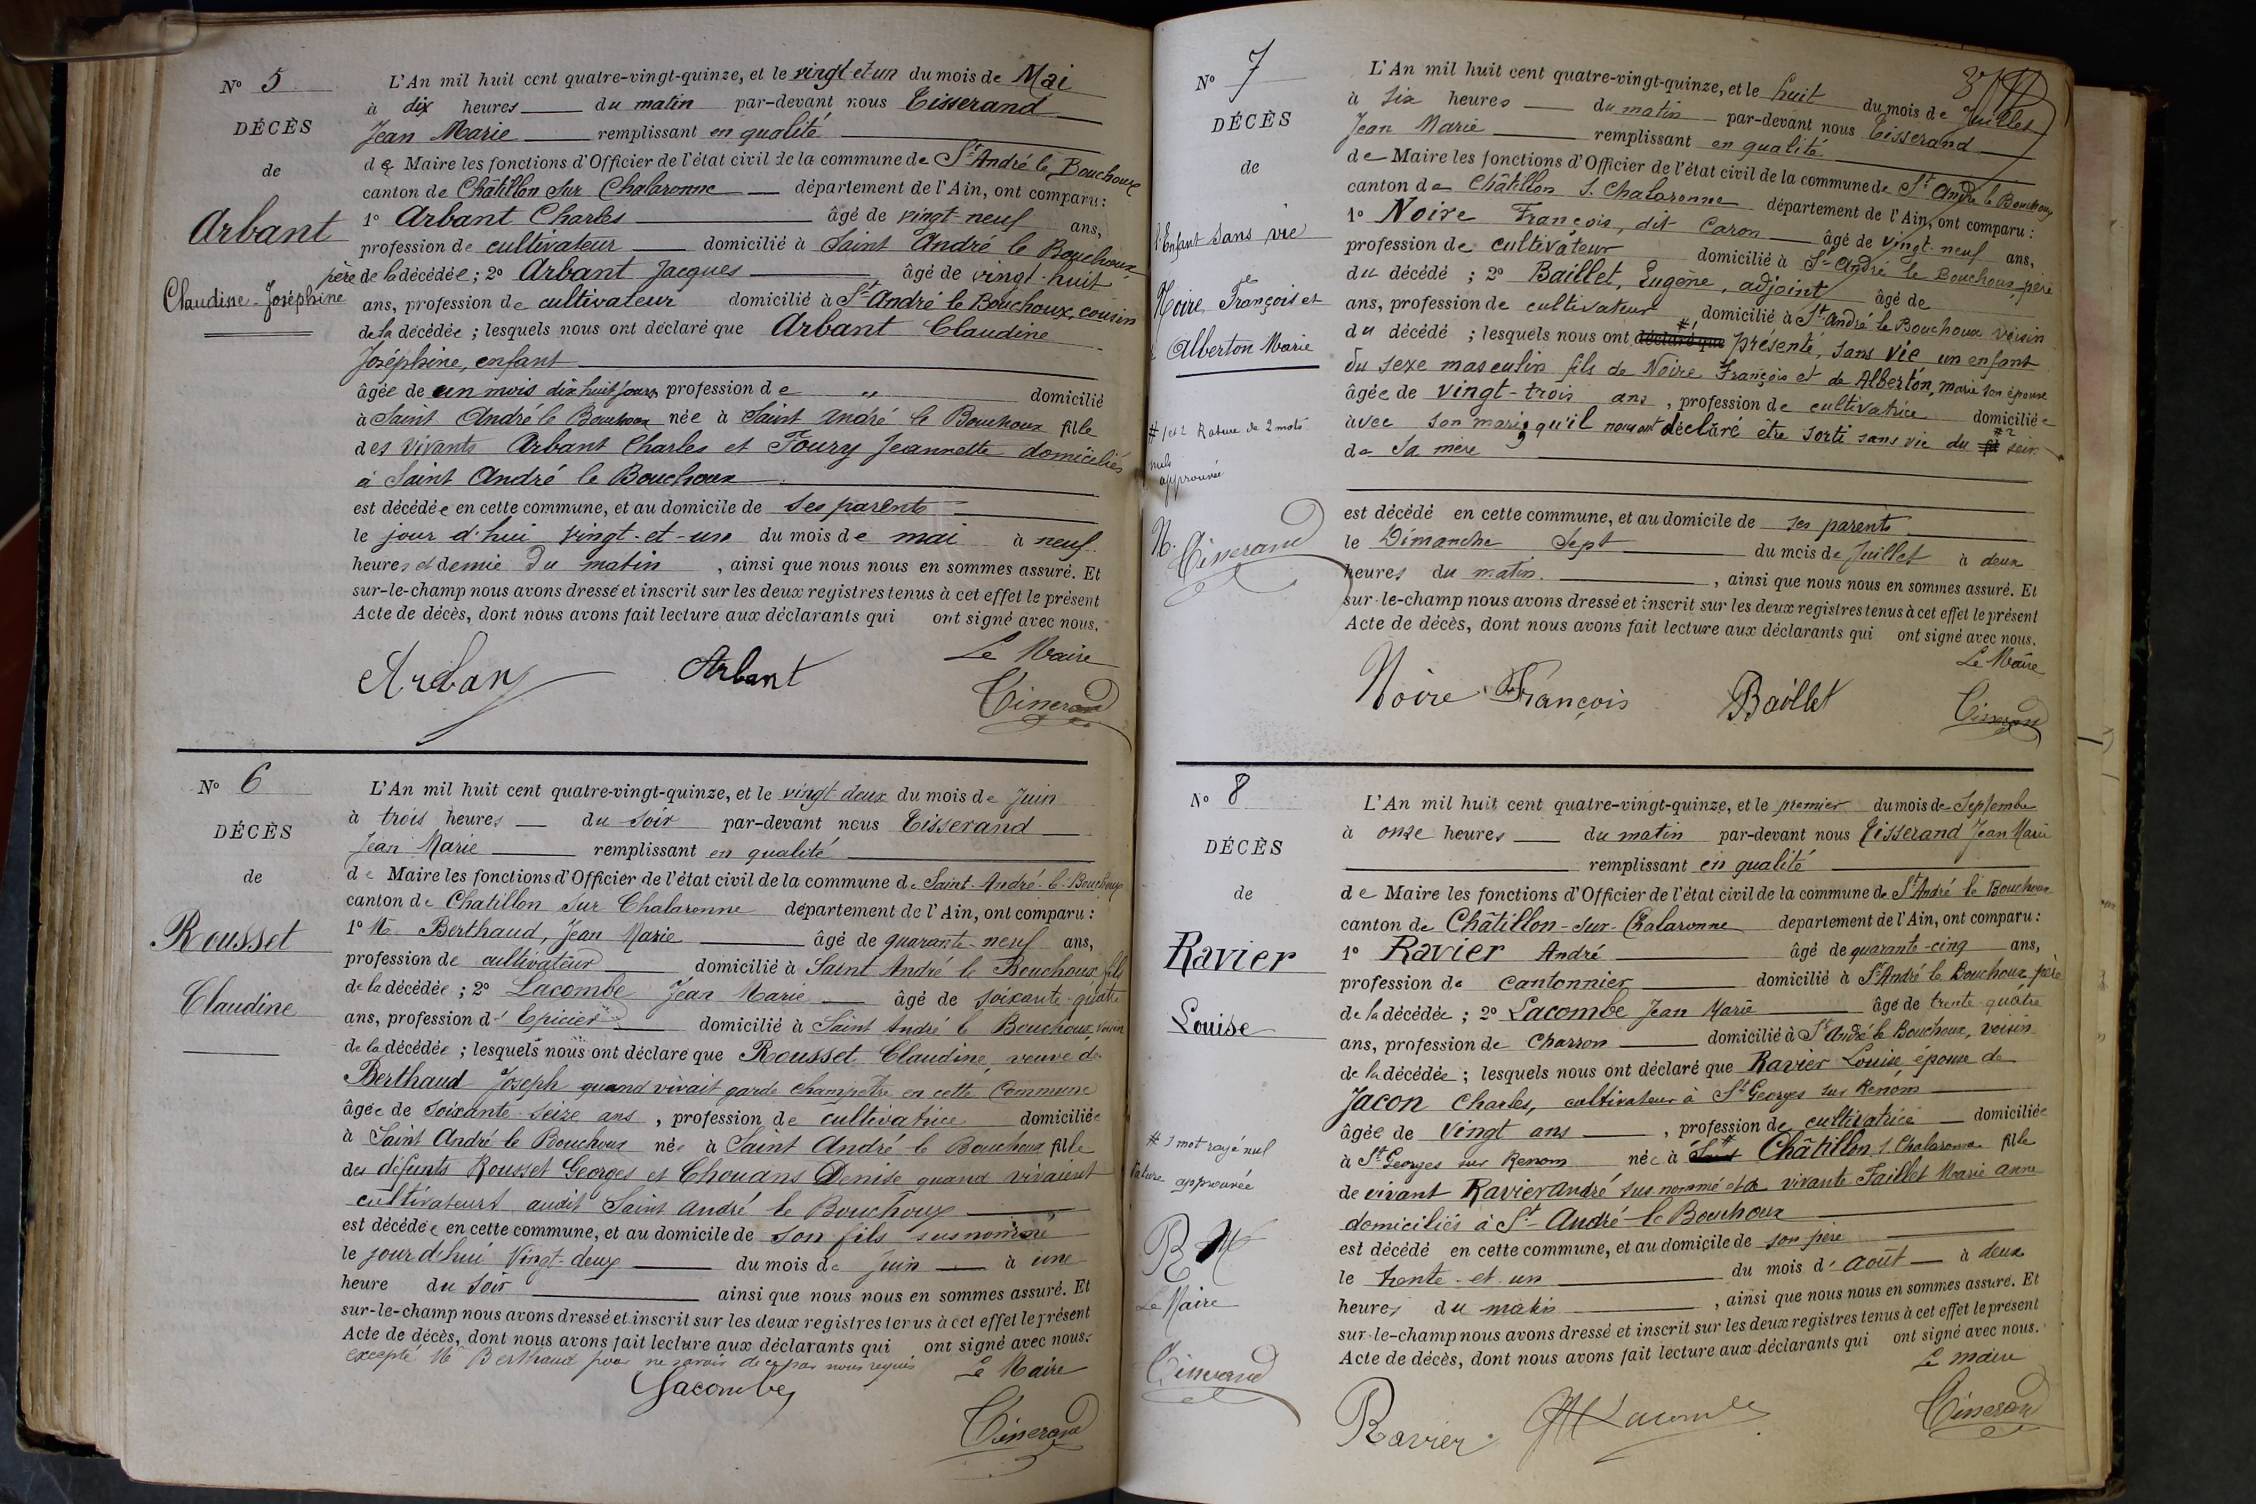 N° 5
DÉCÈS
de
Arbant
Claudine-Joséphine
L'An mil huit cent quatre-vingt-quinze, et le vingt-et-un du mois de Mai
à dix heures du matin par-devant nous Tisserand
Jean Marie remplissant en qualité
de Maire les fonctions d'Officier de l'état civil de la commune de St André le Bouchoux
canton de Châtillon sur Chalaronne département de l'Ain, ont comparu:
1° Arbant Charles âgé de vingt-neuf ans,
profession de cultivateur domicilié à Saint André le Bouchoux
père de la décédée; 2° Arbant Jacques âgé de vingt-huit
ans, profession de cultivateur domicilié à St André le Bouchoux, cousin
de la décédée; lesquels nous ont déclaré que Arbant Claudine
Joséphine, enfant
âgée de un mois dix huit jours, profession de " domicilié
à Saint André le Bouchoux née à Saint André le Bouchoux fille
des vivants Arbant Charles et Foury Jeannette domiciliés
à Saint André le Bouchoux
est décédée en cette commune, et au domicile de ses parents
le jour d'hui vingt-et-un du mois de mai à neuf
heures et demie du matin, ainsi que nous nous en sommes assuré. Et
sur-le-champ nous avons dressé et inscrit sur les deux registres tenus à cet effet le présent
Acte de décès, dont nous avons fait lecture aux déclarants qui ont signé avec nous.
Le Maire
Arban Arbant
Tisserand
N° 6
DÉCÈS
de
Rousset
Claudine
L'An mil huit cent quatre-vingt-quinze, et le vingt deux du mois de Juin
à trois heures du soir par-devant nous Tisserand
Jean Marie remplissant en qualité
de Maire les fonctions d'Officier de l'état civil de la commune de Saint-André-le-Bouchoux
canton de Chatillon sur Chalaronne département de l'Ain, ont comparu:
1° Me Berthaud, Jean Marie âgé de quarante-neuf ans,
profession de cultivateur domicilié à Saint André le Bouchoux fils
de la décédée; 2° Lacombe Jean Marie âgé de soixante-quatre
ans, profession d'Epicier domicilié à Saint André le Bouchoux, voisin
de la décédée; lesquels nous ont déclaré que Rousset Claudine, veuve de
Berthaud Joseph quand vivait garde champêtre en cette Commune
âgée de soixante-seize ans, profession de cultivatrice domiciliée
à Saint André le Bouchoux née à Saint André le Bouchoux fille
des défunts Rousset Georges et Chouans Denise quand vivaient
cultivateurs audit Saint André le Bouchoux
est décédée en cette commune, et au domicile de son fils susnommé
le jour d'hui Vingt-deux du mois de Juin à une
heure du soir ainsi que nous nous en sommes assuré. Et
sur-le-champ nous avons dressé et inscrit sur les deux registres tenus à cet effet le présent
Acte de décès, dont nous avons fait lecture aux déclarants qui ont signé avec nous.
excepté Me Berthaud pour ne savoir de ce par nous requis Le Maire
Lacombe
Tisserand
N° 7
DÉCÈS
de
l'Enfant sans vie
Noire, François et
Alberton Marie
# 1 et 2 Rature de 2 mots
nuls
approuvée
N.
Tisserand
L'An mil huit cent quatre-vingt-quinze, et le huit du mois de Juillet
à six heures du matin par-devant nous Tisserand
Jean Marie remplissant en qualité
de Maire les fonctions d'Officier de l'état civil de la commune de St André le Bouchoux
canton de Châtillon s. Chalaronne département de l'Ain, ont comparu:
1° Noire François, dit Caron âgé de vingt-neuf ans,
profession de cultivateur domicilié à St André le Bouchoux, père
du décédé; 2° Baillet, Eugène, adjoint âgé de
ans, profession de cultivateur domicilié à St André le Bouchoux voisin
du décédé; lesquels nous ont déclaré que #1 présenté, sans vie un enfant
du sexe masculin fils de Noire François et de Alberton, marie son épouse
âgée de vingt-trois ans, profession de cultivatrice domiciliée
avec son mari, qu'il nous ont déclaré être sorti sans vie du #2 sein
de sa mère
est décédé en cette commune, et au domicile de ses parents
le Dimanche Sept du mois de Juillet à deux
heures du matin, ainsi que nous nous en sommes assuré. Et
sur-le-champ nous avons dressé et inscrit sur les deux registres tenus à cet effet le présent
Acte de décès, dont nous avons fait lecture aux déclarants qui ont signé avec nous.
Le Maire
Noire François Baillet
Tisserand
N° 8
DÉCÈS
de
Ravier
Louise
# 1 mot rayé nul
rature approuvée
Le Maire
Tisserand
L'An mil huit cent quatre-vingt-quinze, et le premier du mois de Septembre
à onze heures du matin par-devant nous Tisserand Jean Marie
remplissant en qualité
de Maire les fonctions d'Officier de l'état civil de la commune de St André le Bouchoux
canton de Châtillon-sur-Chalaronne département de l'Ain, ont comparu:
1° Ravier André âgé de quarante-cinq ans,
profession de cantonnier domicilié à St André le Bouchoux père
de la décédée; 2° Lacombe Jean Marie âgé de trente quatre
ans, profession de charron domicilié à St André le Bouchoux, voisin
de la décédée; lesquels nous ont déclaré que Ravier Louise épouse de
Jacon Charles, cultivateur à St Georges sur Renom
âgée de vingt ans, profession de cultivatrice domiciliée
à St Georges sur Renom née à Saint # Châtillon s. Chalaronne fille
de vivant Ravier André sus nommé et de vivante Faillet Marie anne
domiciliés à St André le Bouchoux
est décédé en cette commune, et au domicile de son père
le trente-et-un du mois d'août à deux
heures du matin, ainsi que nous nous en sommes assuré. Et
sur-le-champ nous avons dressé et inscrit sur les deux registres tenus à cet effet le présent
Acte de décès, dont nous avons fait lecture aux déclarants qui ont signé avec nous.
Le maire
Ravier Lacombe
Tisserand